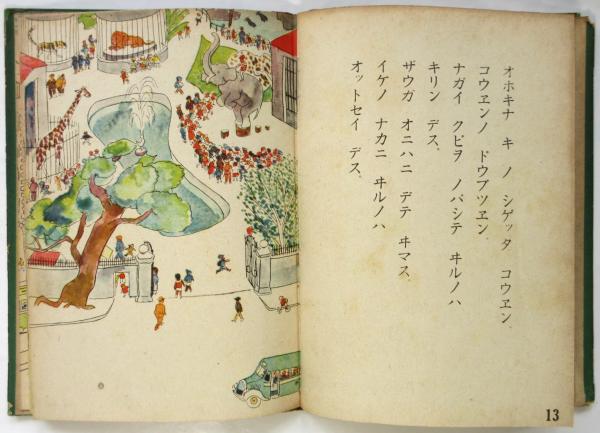 オホキナ キ ノ シゲッタ コウヱン、
コウヱンノ ドウブツヱン、
ナガイ クビヲ ノバシテ ヰルノハ
キリン デス、
ザウガ オニハニ デテ ヰマス、
イケノ ナカニ ヰルノハ
オットセイ デス、
13